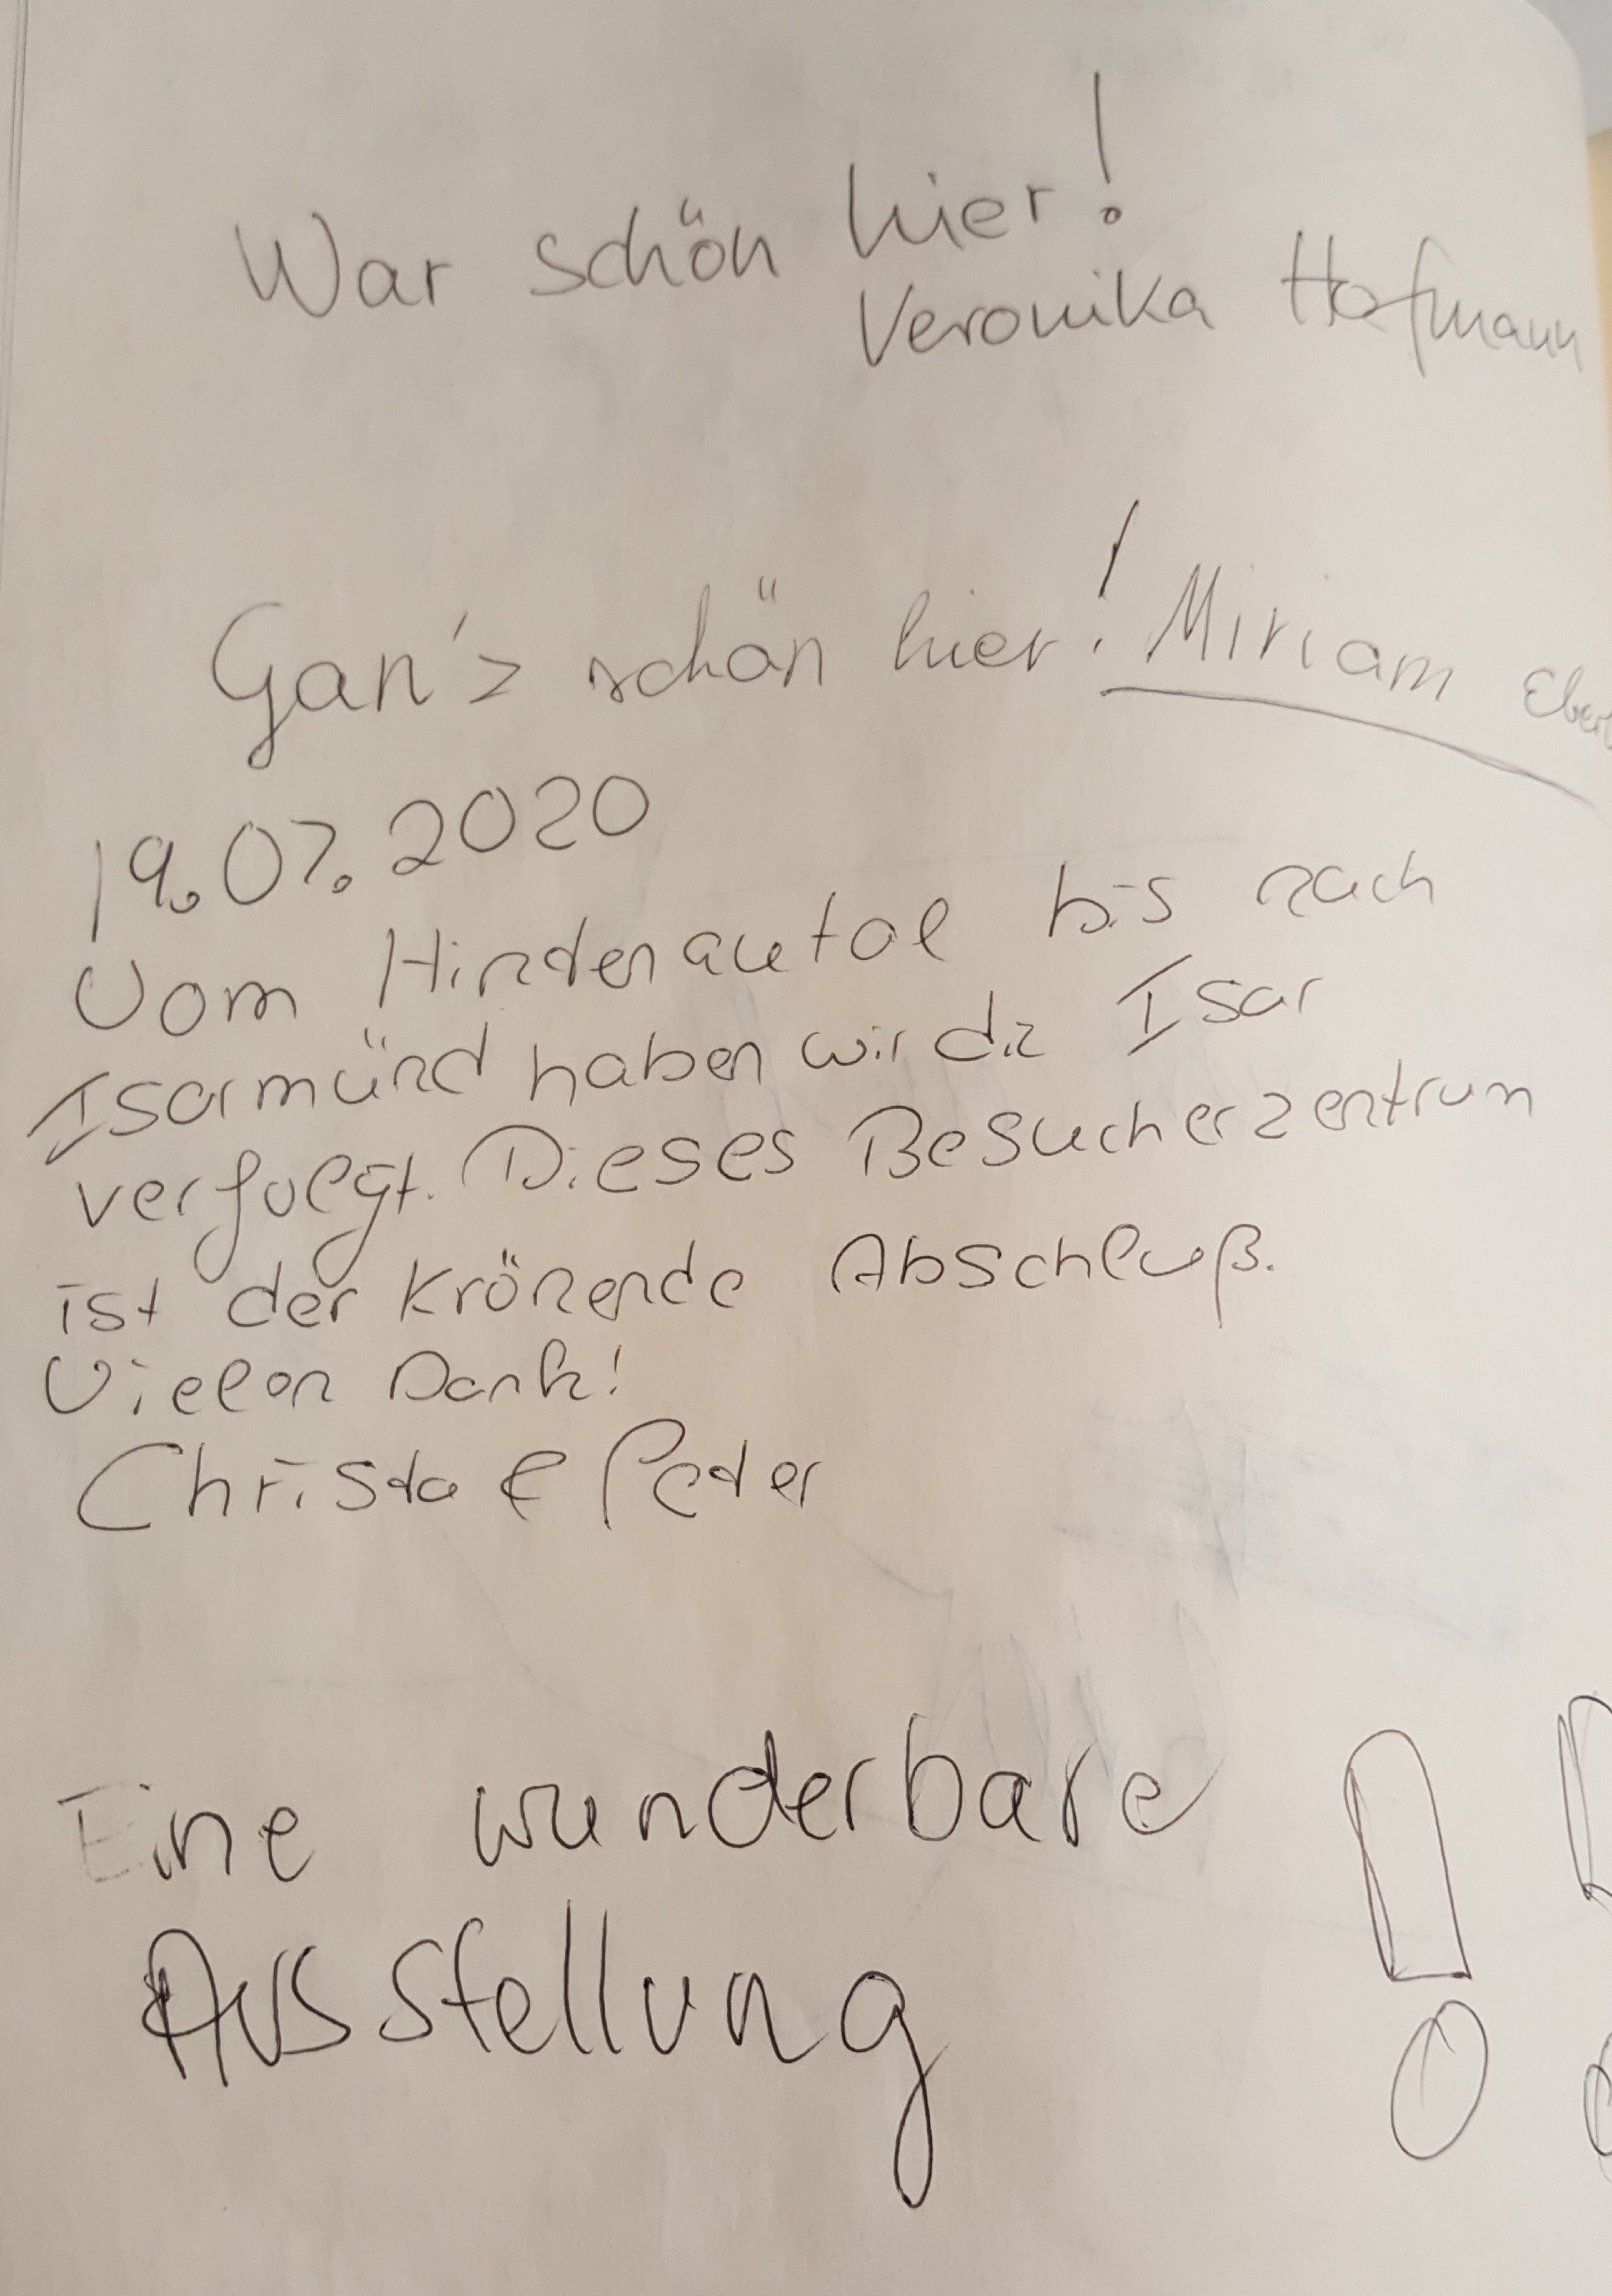 War schön hier!
Veronika Hofmann
Gan'z schön hier! Miriam
19.07.2020
Vom Hinterautal bis nach
Isarmünd haben wir die Isar
verfolgt. Dieses Besucherzentrum
ist der Krönende Abschluß.
Vielen Dank!
Christa & Peter
Eine wunderbare !
Ausstellung